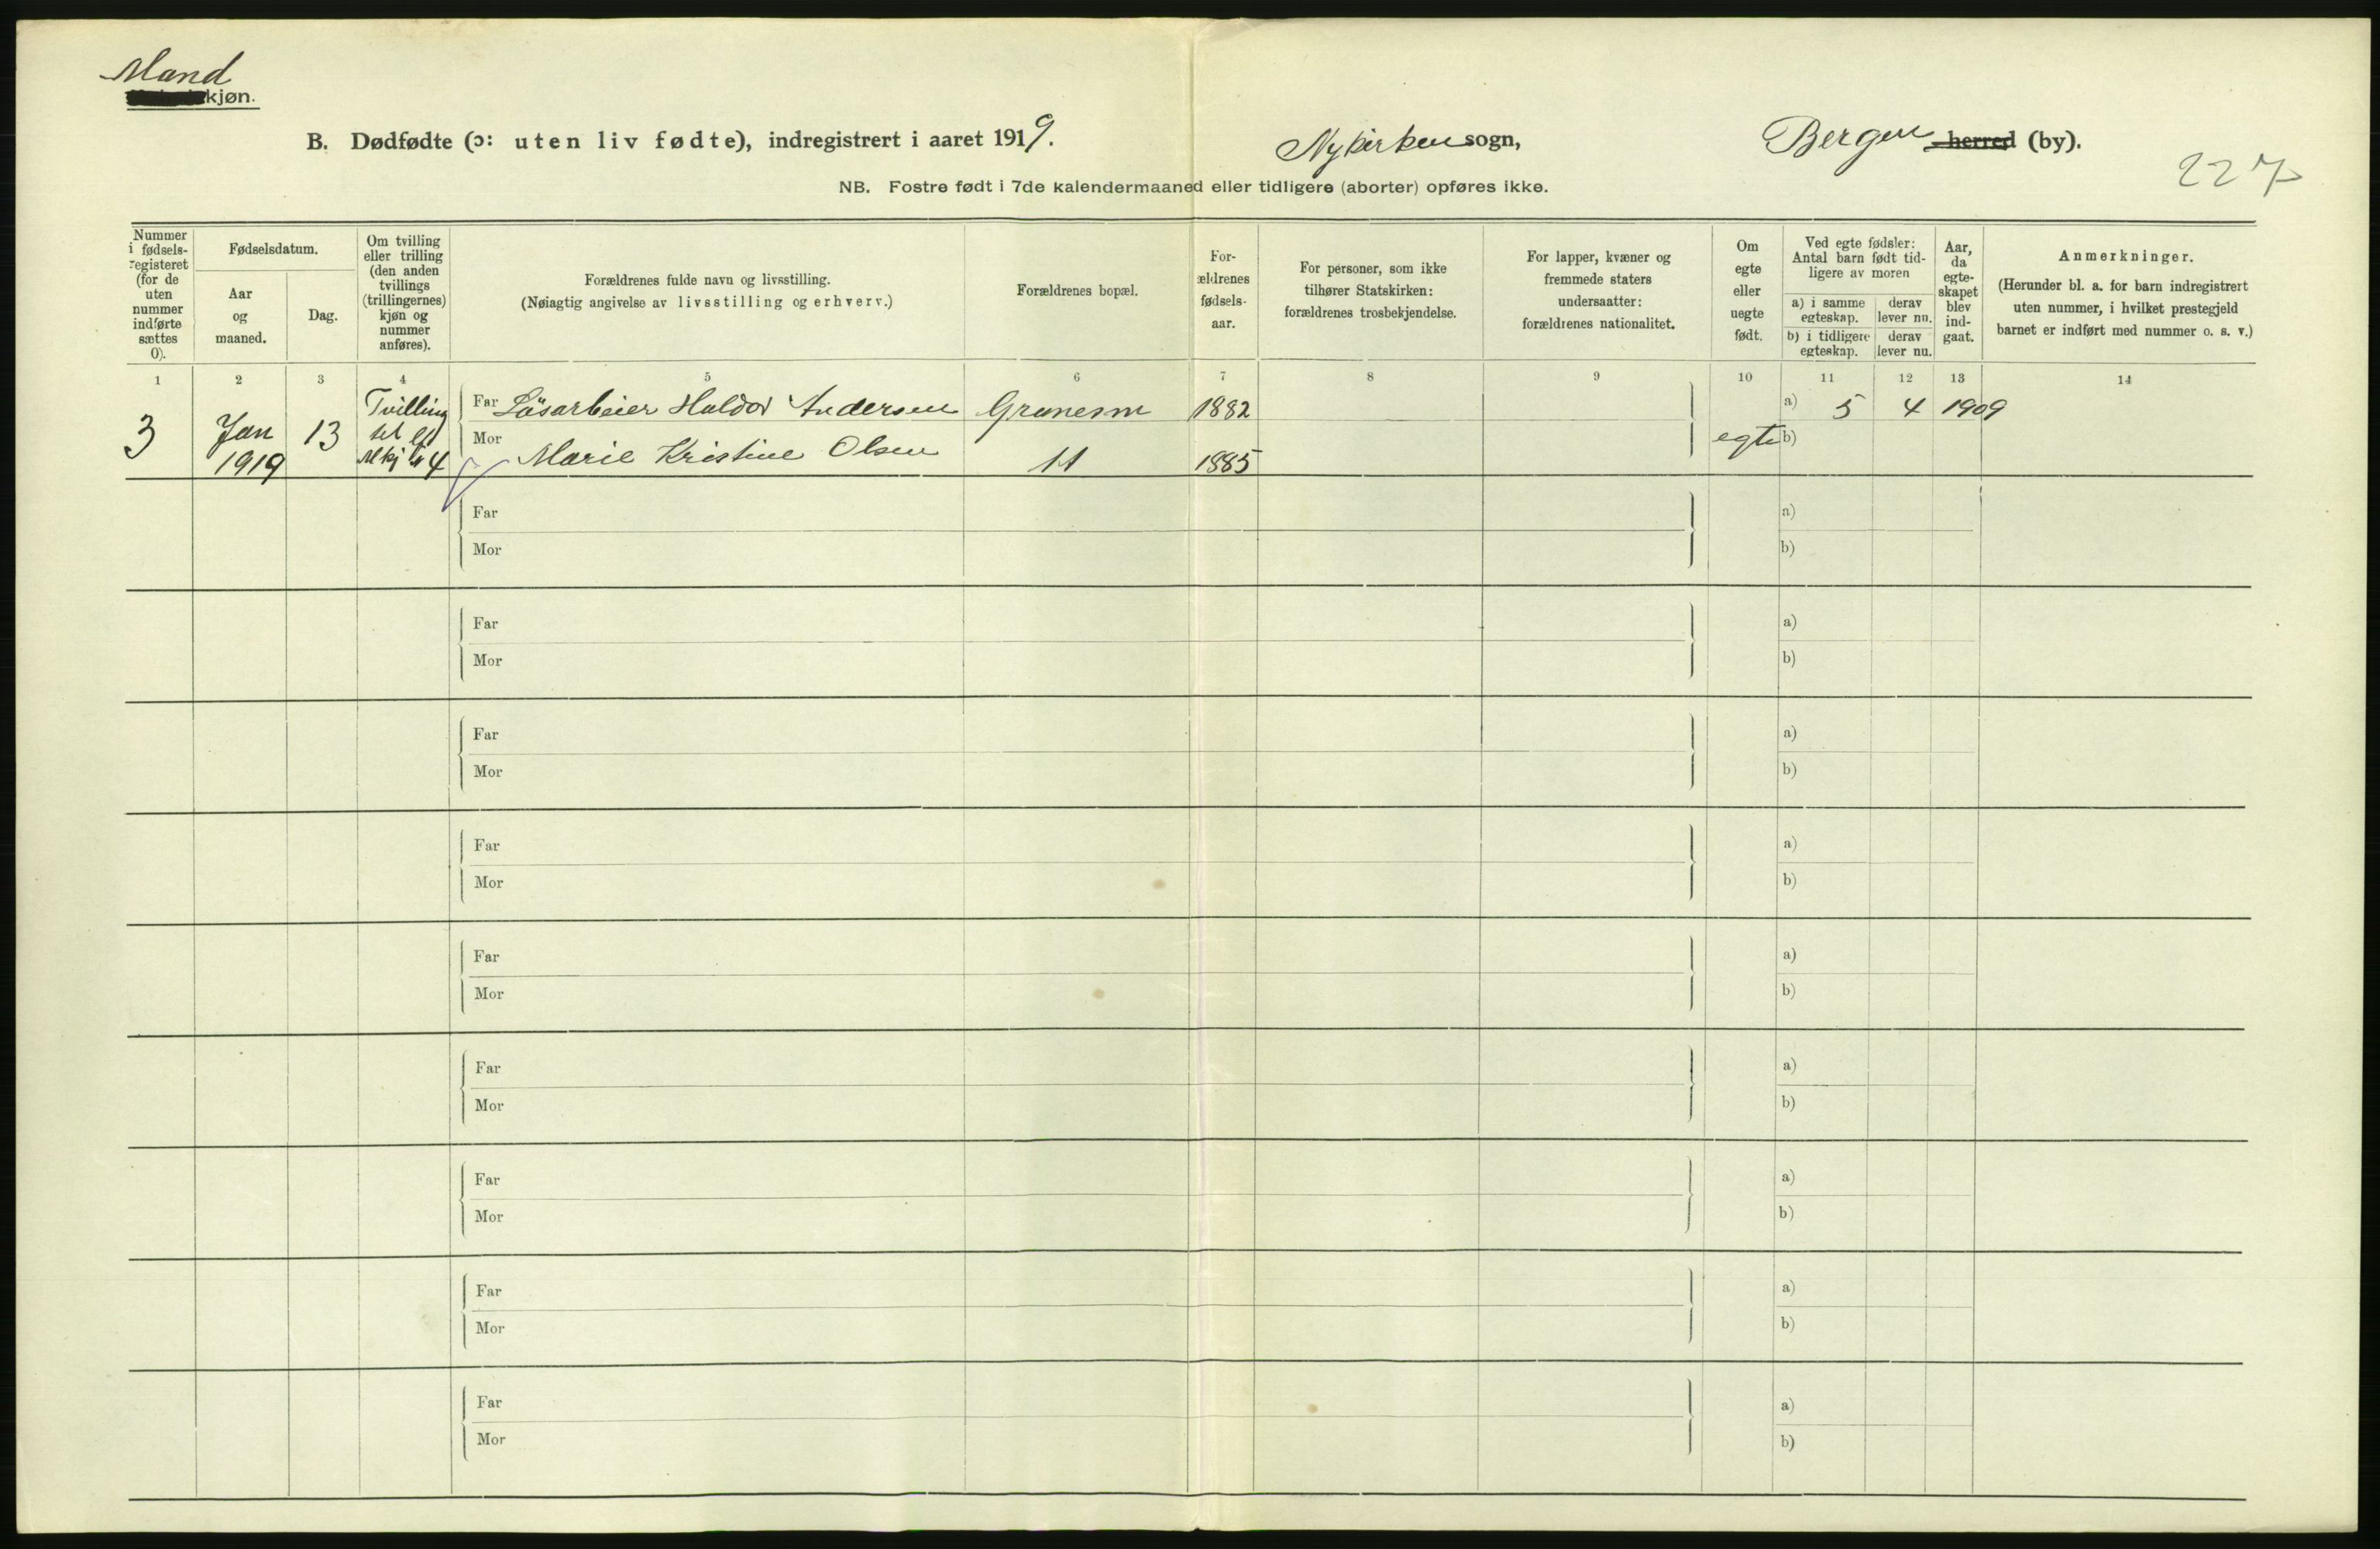 Mand
kjøn.
B. Dødfødte (ɔ: uten liv fødte), indregistrert i aaret 1919.
Nykirken sogn,
Bergen herred (by).
227
NB. Fostre født i 7de kalendermaaned eller tidligere (aborter) opføres ikke.
Nummer
i fødsels-
registeret
(for de
uten
nummer
indførte
sættes
0).
Fødselsdatum.
Aar
og
maaned.
Dag.
Om tvilling
eller trilling
(den anden
tvillings
(trillingernes)
kjøn og
nummer
anføres).
Forældrenes fulde navn og livsstilling.
(Nøiagtig angivelse av livsstilling og erhverv.)
Forældrenes bopæl.
For-
ældrenes
fødsels-
aar.
For personer, som ikke
tilhører Statskirken:
forældrenes trosbekjendelse.
For lapper, kvæner og
fremmede staters
undersaatter:
forældrenes nationalitet.
Om
egte
eller
uegte
født.
Ved egte fødsler:
Antal barn født tid-
ligere av moren
a) i samme
egteskap.
derav
lever nu.
b) i tidligere
egteskap.
derav
lever nu.
Aar,
da
egte-
skapet
blev
ind-
gaat.
Anmerkninger.
(Herunder bl. a. for barn indregistrert
uten nummer, i hvilket prestegjeld
barnet er indført med nummer o. s. v.)
1 2 3 4 5 6 7 8 9 10 11 12 13 14
3
Jan
1919
13
Tvilling
Mkj 4
Far Løsarbeier Haldor Andersen
1882
a) 5 4 1909
Mor Marie Kristine Olsen
11
1885
egte b)
Far a)
Mor b)
Far a)
Mor b)
Far a)
Mor b)
Far a)
Mor b)
Far a)
Mor b)
Far a)
Mor b)
Far a)
Mor b)
Far a)
Mor b)
Far a)
Mor b)